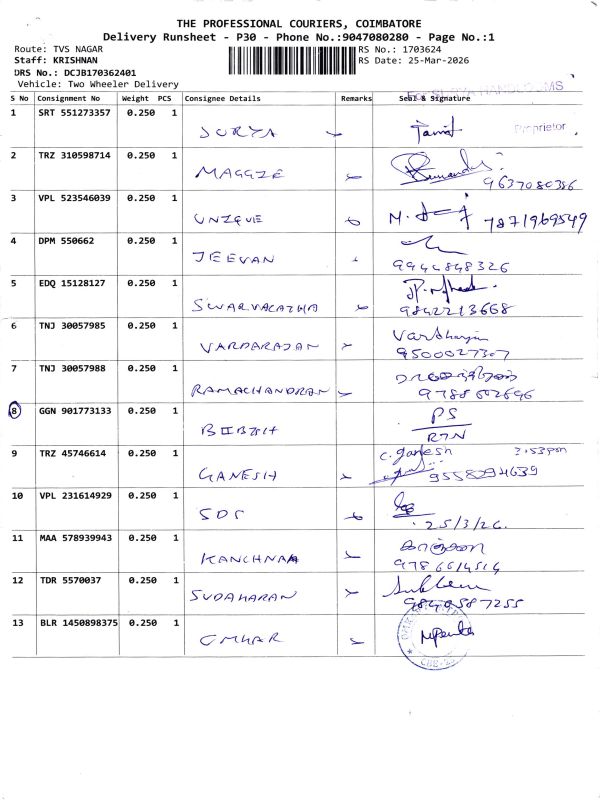 THE PROFESSIONAL COURIERS, COIMBATORE
Delivery Runsheet - P30 - Phone No.:9047080280 - Page No.:1
Route: TVS NAGAR RS No.: 1703624
Staff: KRISHNAN RS Date: 25-Mar-2026
DRS No.: DCJB170362401
Vehicle: Two Wheeler Delivery
S No Consignment No Weight PCS Consignee Details Remarks Seal & Signature
1 SRT 551273357 0.250 1 SURYA Proprietor
2 TRZ 310598714 0.250 1 MAGGIE 9637080356
3 VPL 523546039 0.250 1 UNIQUE 7871969549
4 DPM 550662 0.250 1 JEEVAN 9944848326
5 EDQ 15128127 0.250 1 9842213668
6 TNJ 30057985 0.250 1 VARDARAJAN 9500027307
7 TNJ 30057988 0.250 1 RAMACHANDRAN
8 GGN 901773133 0.250 1 PS
RTN
9 TRZ 45746614 0.250 1 GANESH C. Ganesh 3.53pm
9558294639
10 VPL 231614929 0.250 1 SDS 25/3/26.
11 MAA 578939943 0.250 1 KANCHNAA 9786614514
12 TDR 5570037 0.250 1 SUDAHARAN
13 BLR 1450898375 0.250 1 OMKAR